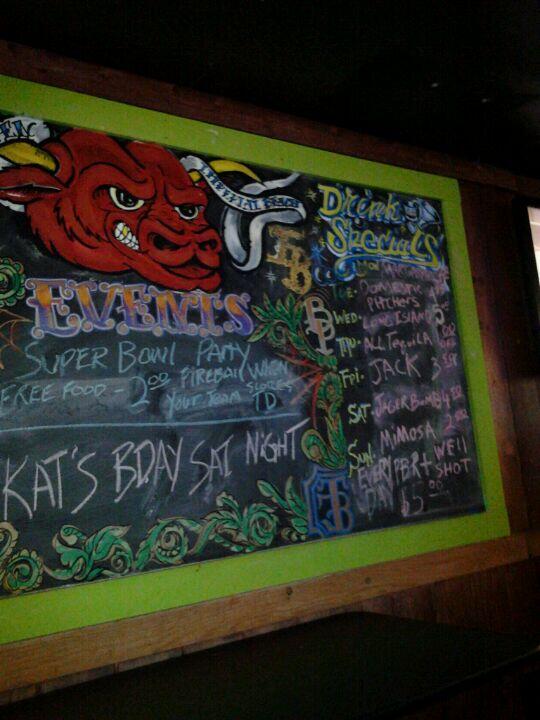 IMPERIAL BEACH
EVENTS
SUPER BOWL PARTY
FREE FOOD - 2.00 FIREBALL WHEN
YOUR TEAM SCORES
TD
KAT'S BDAY SAT NIGHT
IB
Drink
Specials
TUE: DOMESTIC
PITCHERS
WED: LONG ISLAND 5
THU: ALL TEQUILA
Fri: JACK 3
SAT: JAGER BOMB 4
Sun: MIMOSA 2
EVERY PBR + WELL
DAY SHOT
$5.00
IB